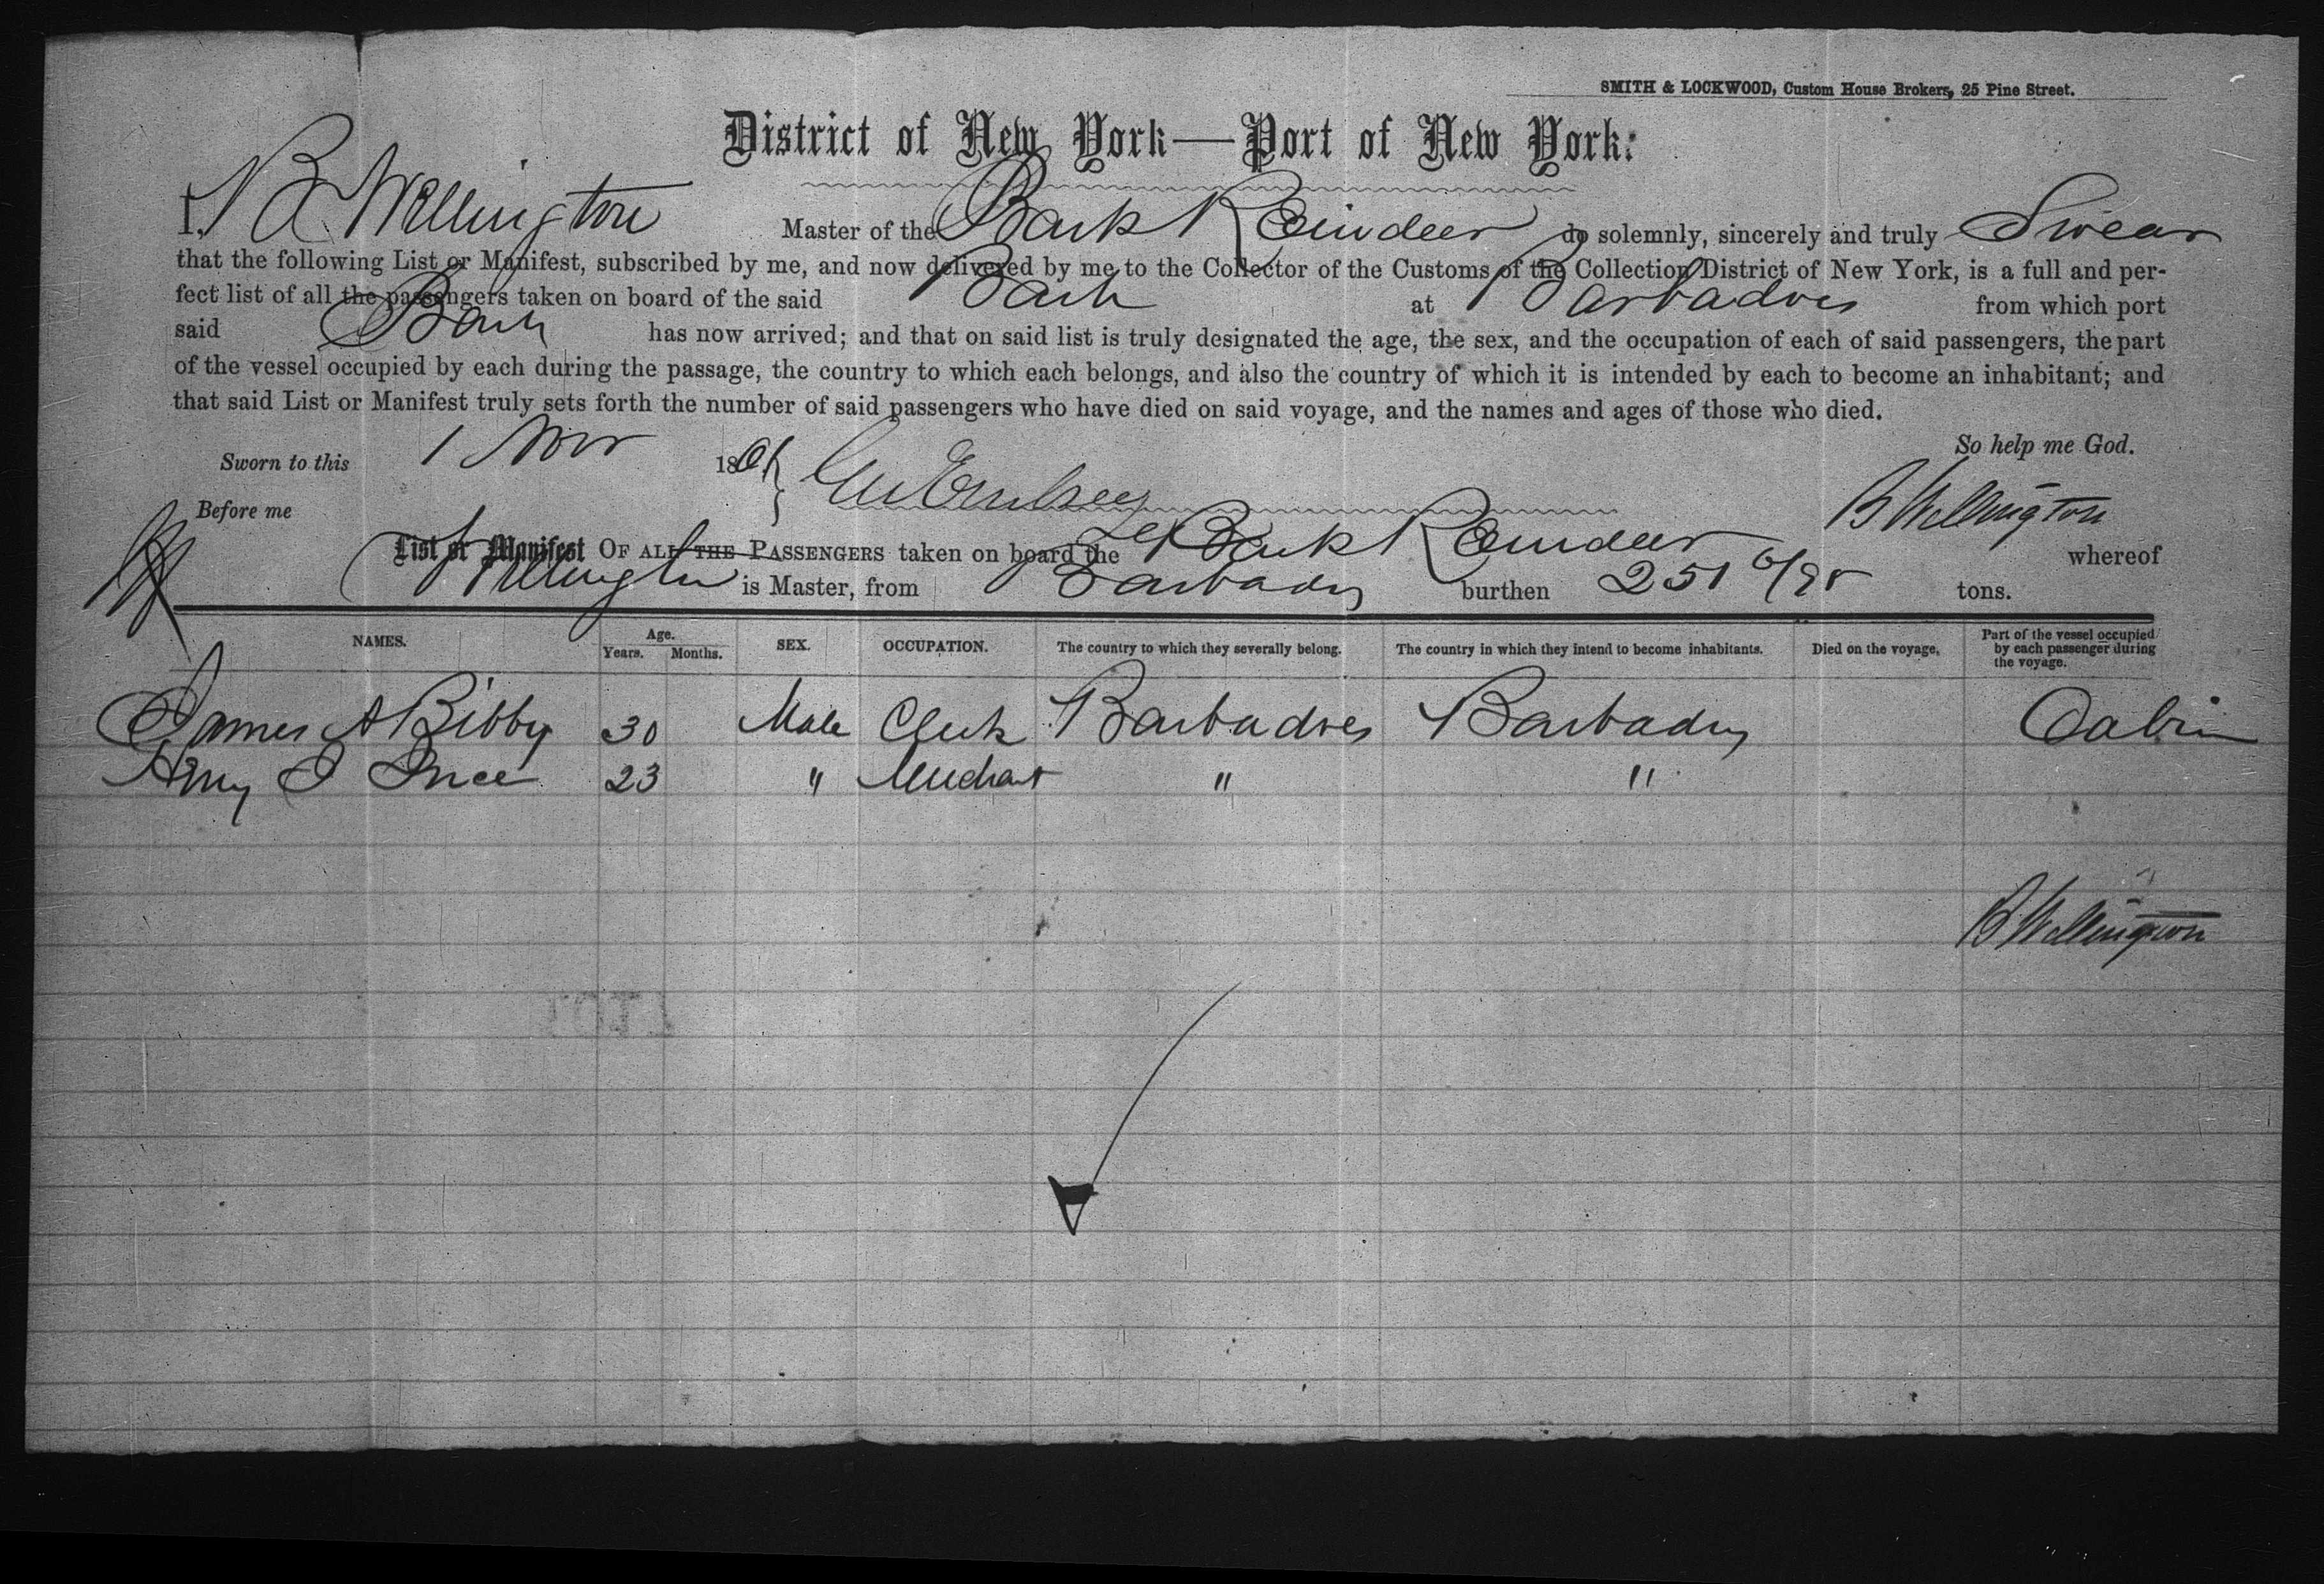 SMITH & LOCKWOOD, Custom House Brokers, 25 Pine Street.
District of New York—Port of New York:
I, Wellington Master of the Bark Reindeer do solemnly, sincerely and truly Swear
that the following List or Manifest, subscribed by me, and now delivered by me to the Collector of the Customs of the Collection District of New York, is a full and per-
fect list of all the passengers taken on board of the said Bark at Barbadoes from which port
said Bark has now arrived; and that on said list is truly designated the age, the sex, and the occupation of each of said passengers, the part
of the vessel occupied by each during the passage, the country to which each belongs, and also the country of which it is intended by each to become an inhabitant; and
that said List or Manifest truly sets forth the number of said passengers who have died on said voyage, and the names and ages of those who died.
So help me God.
Sworn to this 1 Nov 1861
Before me
B Wellington
List or Manifest OF ALL THE PASSENGERS taken on board the Bark Reindeer whereof
Wellington is Master, from Barbados burthen 251 tons.
NAMES. Age. Years. Months. SEX. OCCUPATION. The country to which they severally belong. The country in which they intend to become inhabitants. Died on the voyage, Part of the vessel occupied by each passenger during the voyage.
James A Bibby 30 Male Clerk Barbadoes Barbados Cabin
23 " Merchant " "
B Wellington